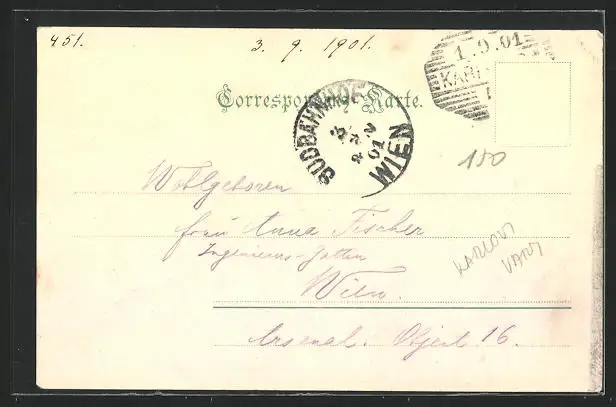 451.
3. 9. 1901.
1.9.01
KARL
Correspondenz-Karte.
SÜDBAHNHOF
WIEN
01
150
Wohlgeboren
Frau Anna Fischer
Ingenieurs-Gattin
Wien.
Arsenal. Object 16.
KARLOVY
VARY